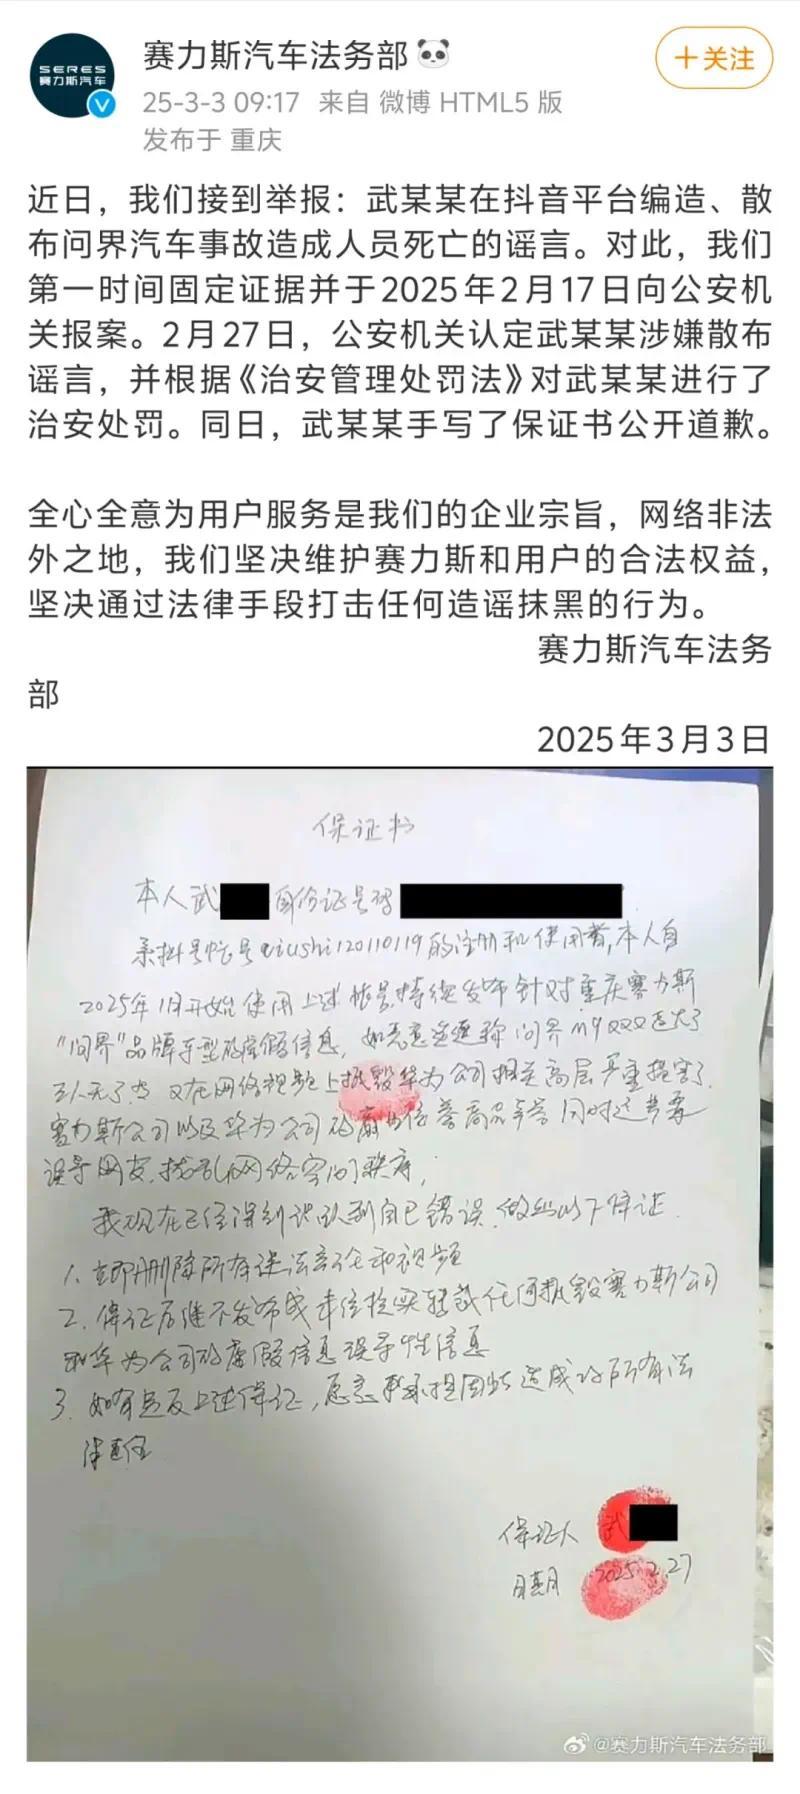 SERES
赛力斯汽车
赛力斯汽车法务部
+关注
25-3-3 09:17 来自 微博 HTML5 版
发布于 重庆
近日，我们接到举报：武某某在抖音平台编造、散
布问界汽车事故造成人员死亡的谣言。对此，我们
第一时间固定证据并于2025年2月17日向公安机
关报案。2月27日，公安机关认定武某某涉嫌散布
谣言，并根据《治安管理处罚法》对武某某进行了
治安处罚。同日，武某某手写了保证书公开道歉。
全心全意为用户服务是我们的企业宗旨，网络非法
外之地，我们坚决维护赛力斯和用户的合法权益，
坚决通过法律手段打击任何造谣抹黑的行为。
赛力斯汽车法务
部
2025年3月3日
保证书
本人武 身份证号码
系抖号帐号qiushi120110119的注册和使用者,本人自
2025年1月开始使用上述帐号,持续发布针对重庆赛力斯
"问界"品牌车型的虚假信息,如恶意造谣称问界m9
又在网络视频上抵毁华为公司相关高层严重损害了
赛力斯公司以及华为公司的商业信誉商品声誉同时还
误导网友,扰乱网络空间秩序,
我现在已经深刻认识到自己错误,做出以下保证
1、立即删除所有违法言论和视频
2、保证后续不发布或未经核实转载任何抵毁赛力斯公司
和华为公司的虚假信息误导性信息
3、如有违反上述保证,愿意承担因此造成的所有法
律责任
保证人 武
日期 2025.2.27
@赛力斯汽车法务部